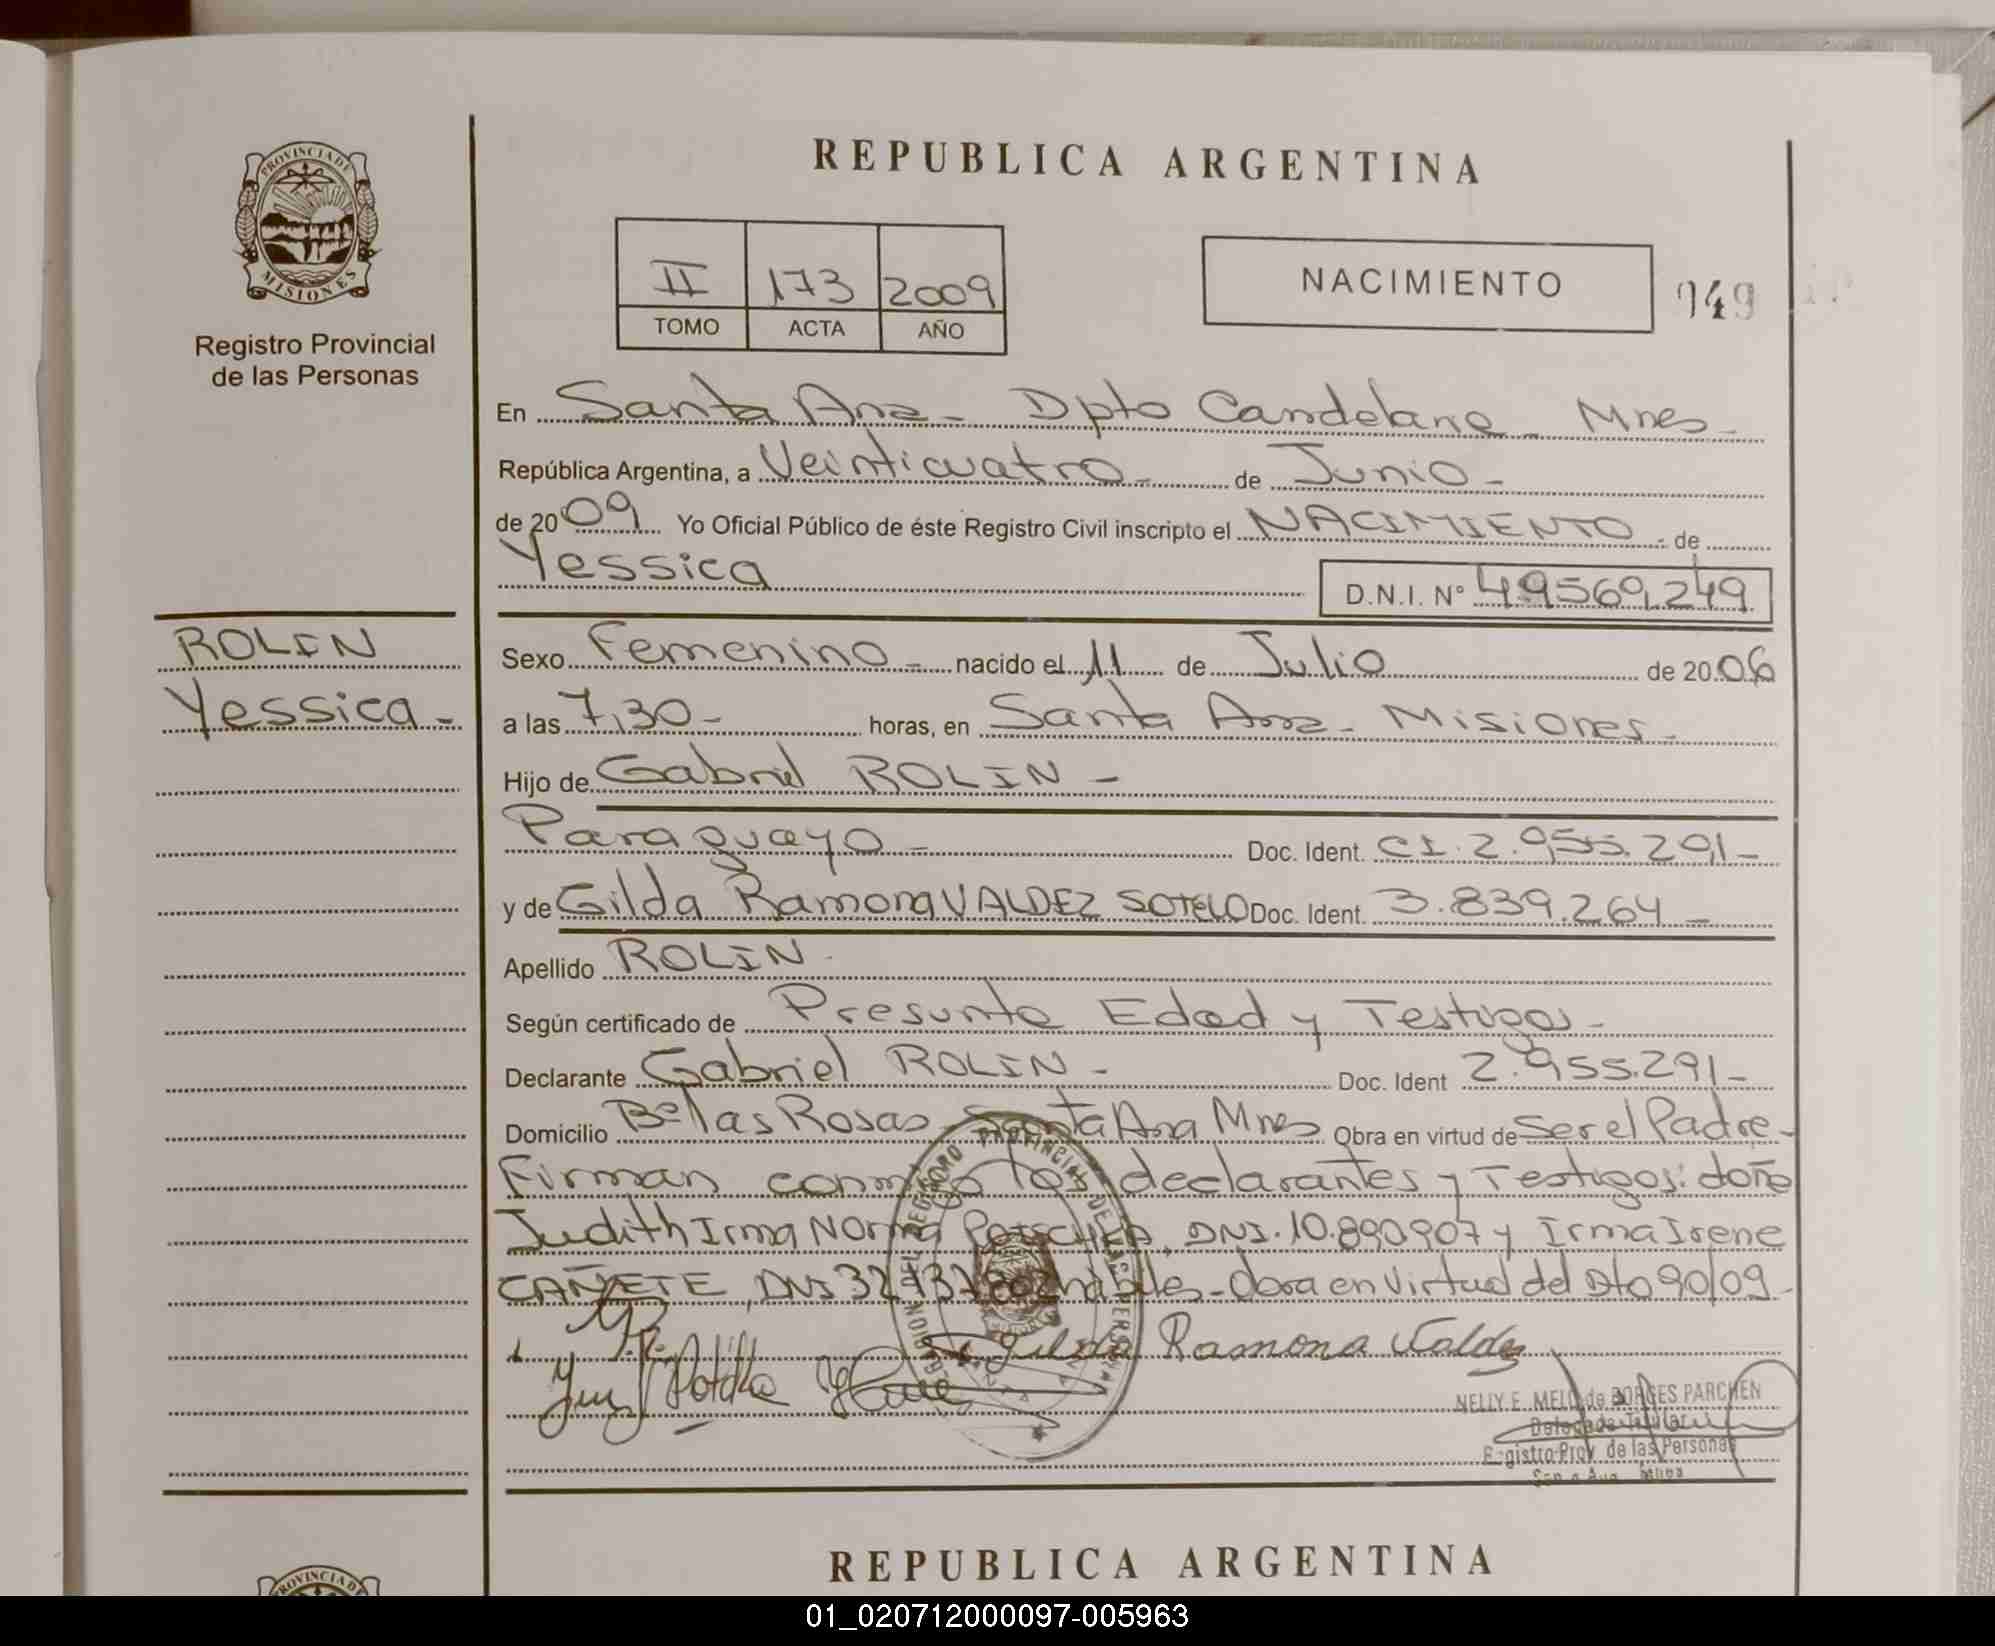 PROVINCIA DE
MISIONES
Registro Provincial
de las Personas
REPUBLICA ARGENTINA
II 173 2009
TOMO ACTA AÑO
NACIMIENTO
149
En Santa Ana - Dpto Candelaria - Mnes -
República Argentina, a Veinticuatro - de Junio -
de 2009 Yo Oficial Público de éste Registro Civil inscripto el NACIMIENTO - de
Yessica D.N.I. Nº 49.569.249
ROLIN
Yessica -
Sexo Femenino - nacido el 11 de Julio de 2006
a las 7,30 - horas, en Santa Ana - Misiones -
Hijo de Gabriel ROLIN -
Paraguayo - Doc. Ident. CI. 2.955.291 -
y de Gilda Ramona VALDEZ SOTELO Doc. Ident. 3.839.264 -
Apellido ROLIN -
Según certificado de Presunta Edad y Testigos -
Declarante Gabriel ROLIN - Doc. Ident 2.955.291 -
Domicilio Bº Las Rosas - Santa Ana Mnes Obra en virtud de Ser el Padre -
Firman conmigo los declarantes y Testigos: doña
Judith Irma Norma DNI. 10.890.907 y Irma Irene
CAÑETE, DNI hábiles - Obra en Virtud del Dto 90/09 -
Gilda Ramona Valdez
NELLY E. MELO de BORGES PARCHEN
Delegada Titular
Registro Prov. de las Personas
Santa Ana Mnes
REPUBLICA ARGENTINA
PROVINCIA DE
01_020712000097-005963